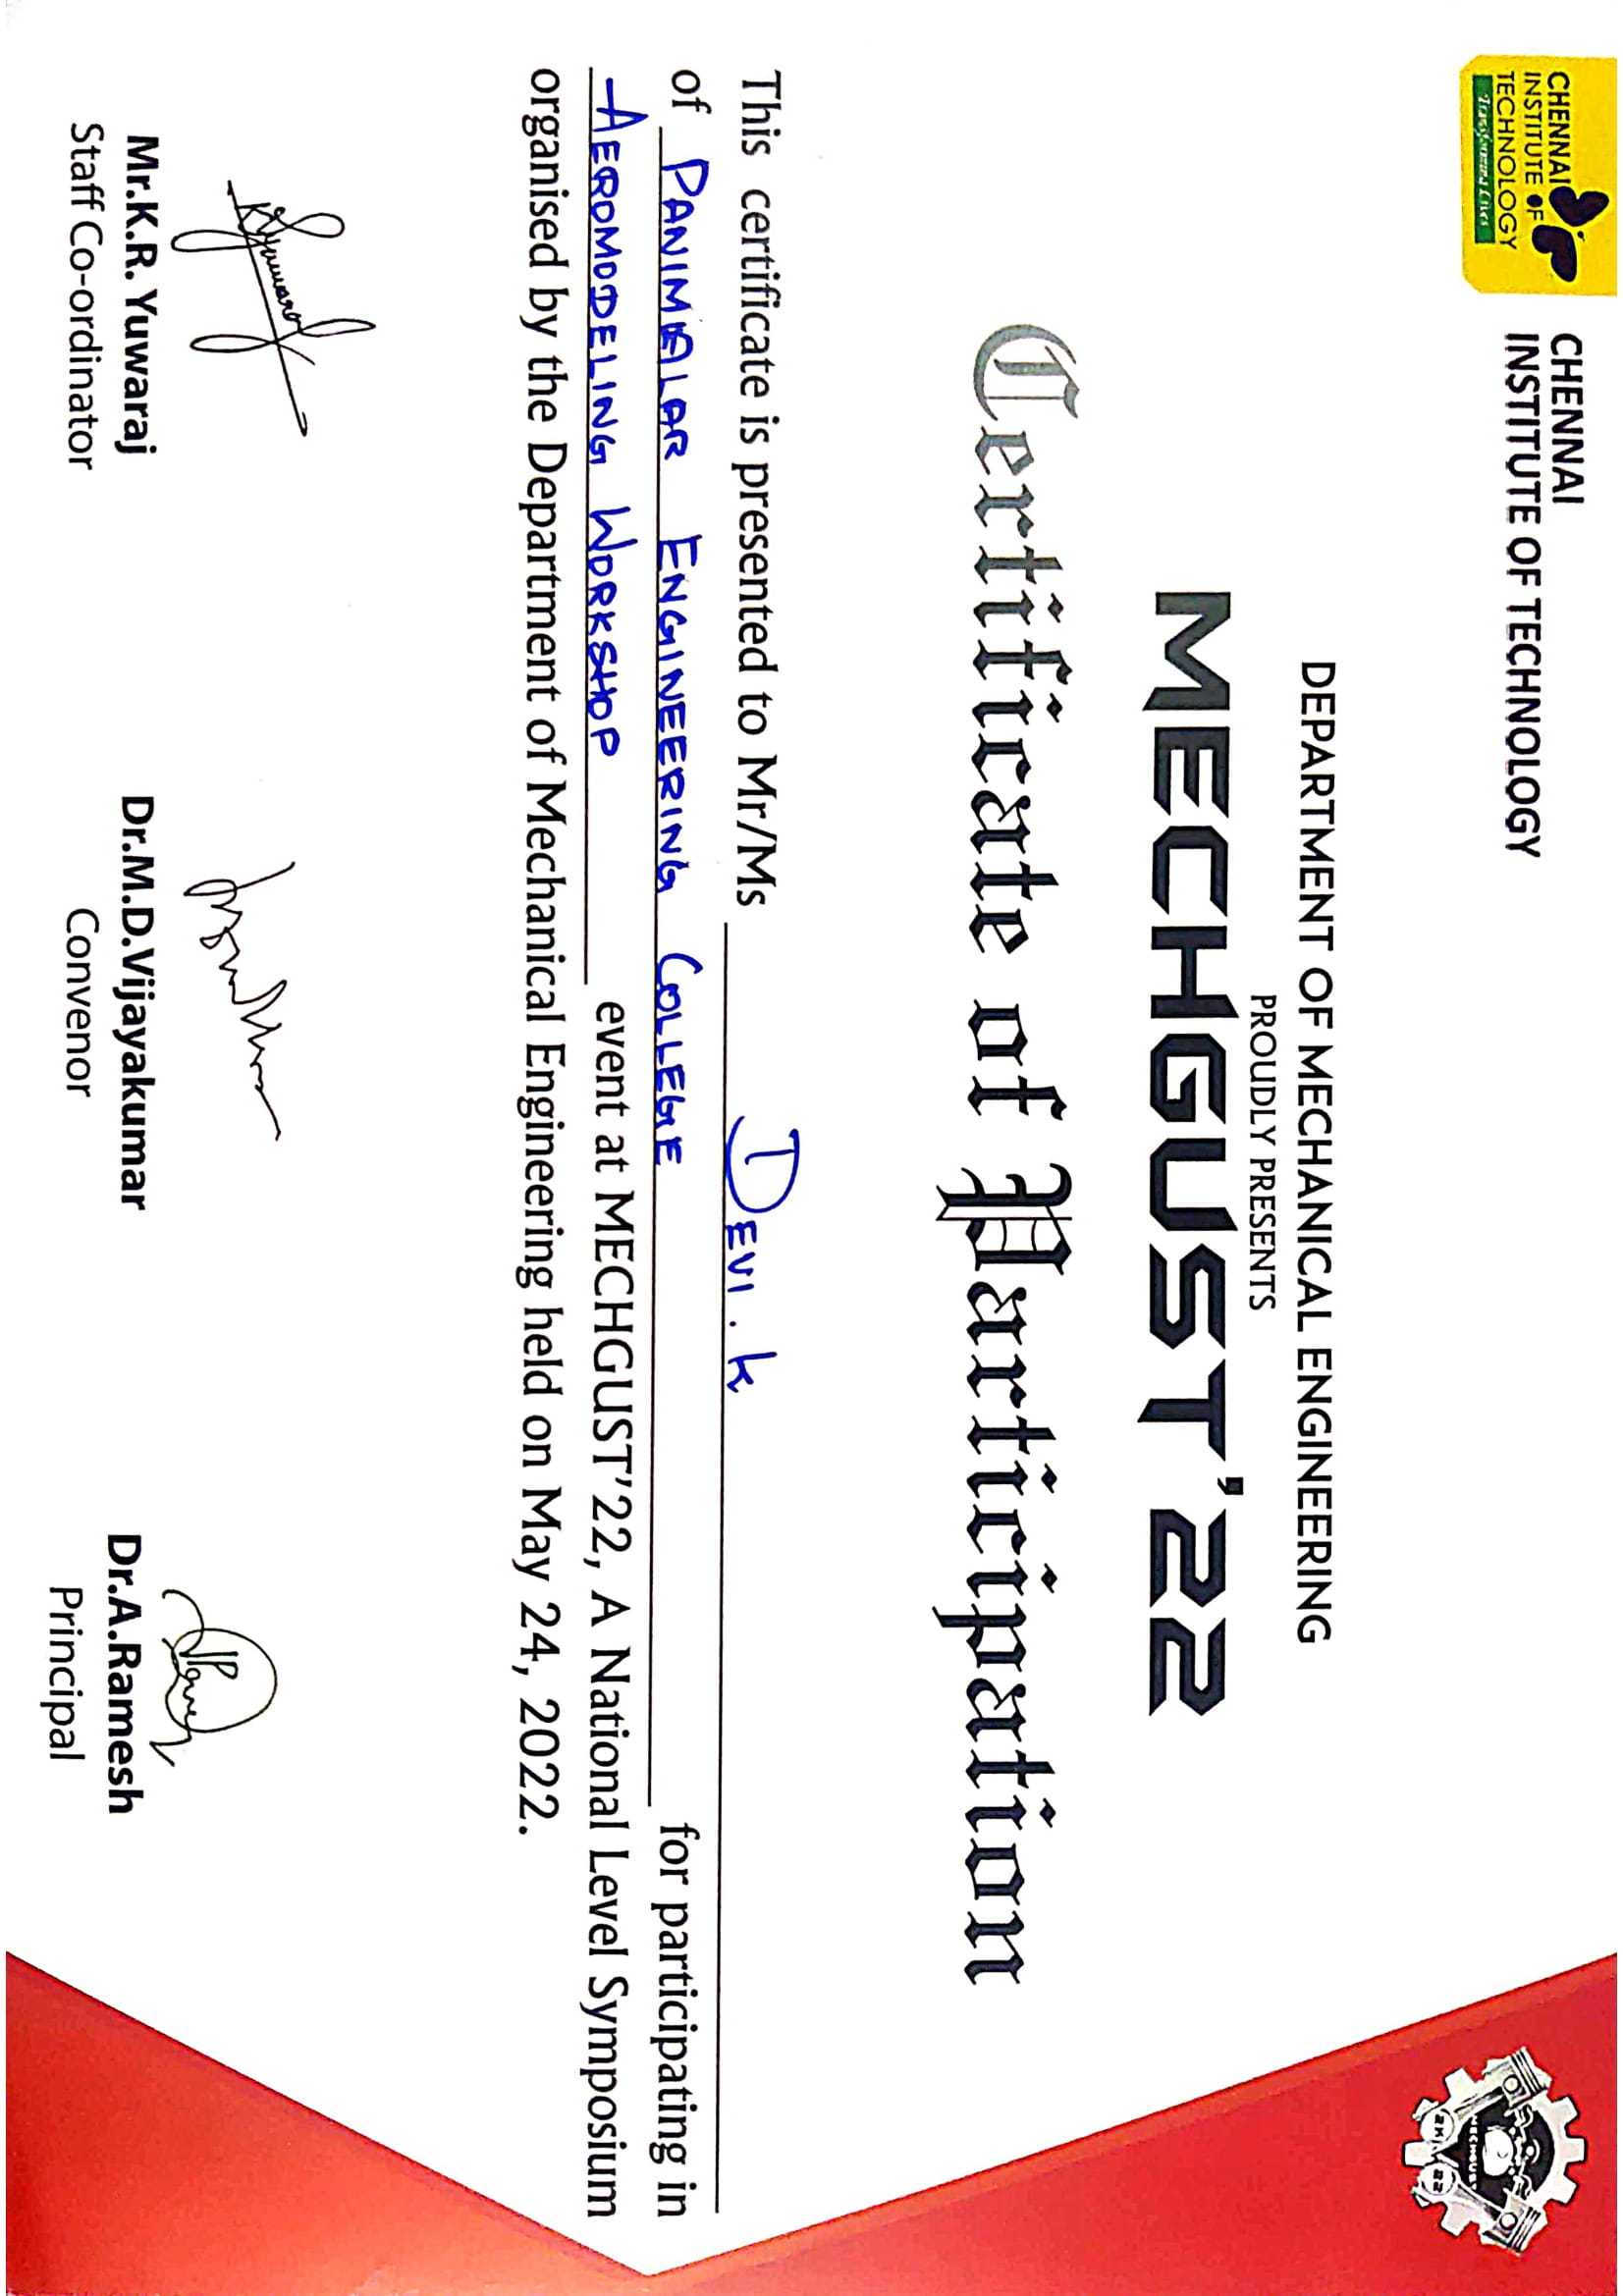 CHENNAI
INSTITUTE OF
TECHNOLOGY
Transforming Lives
CHENNAI
INSTITUTE OF TECHNOLOGY
MECHGUST
2K 22
DEPARTMENT OF MECHANICAL ENGINEERING
PROUDLY PRESENTS
MECHGUST'22
Certificate of Participation
This certificate is presented to Mr/Ms DEVI . K
of PANIMALAR ENGINEERING COLLEGE for participating in
AEROMODELING WORKSHOP event at MECHGUST'22, A National Level Symposium
organised by the Department of Mechanical Engineering held on May 24, 2022.
Mr.K.R. Yuwaraj
Staff Co-ordinator
Dr.M.D.Vijayakumar
Convenor
Dr.A.Ramesh
Principal